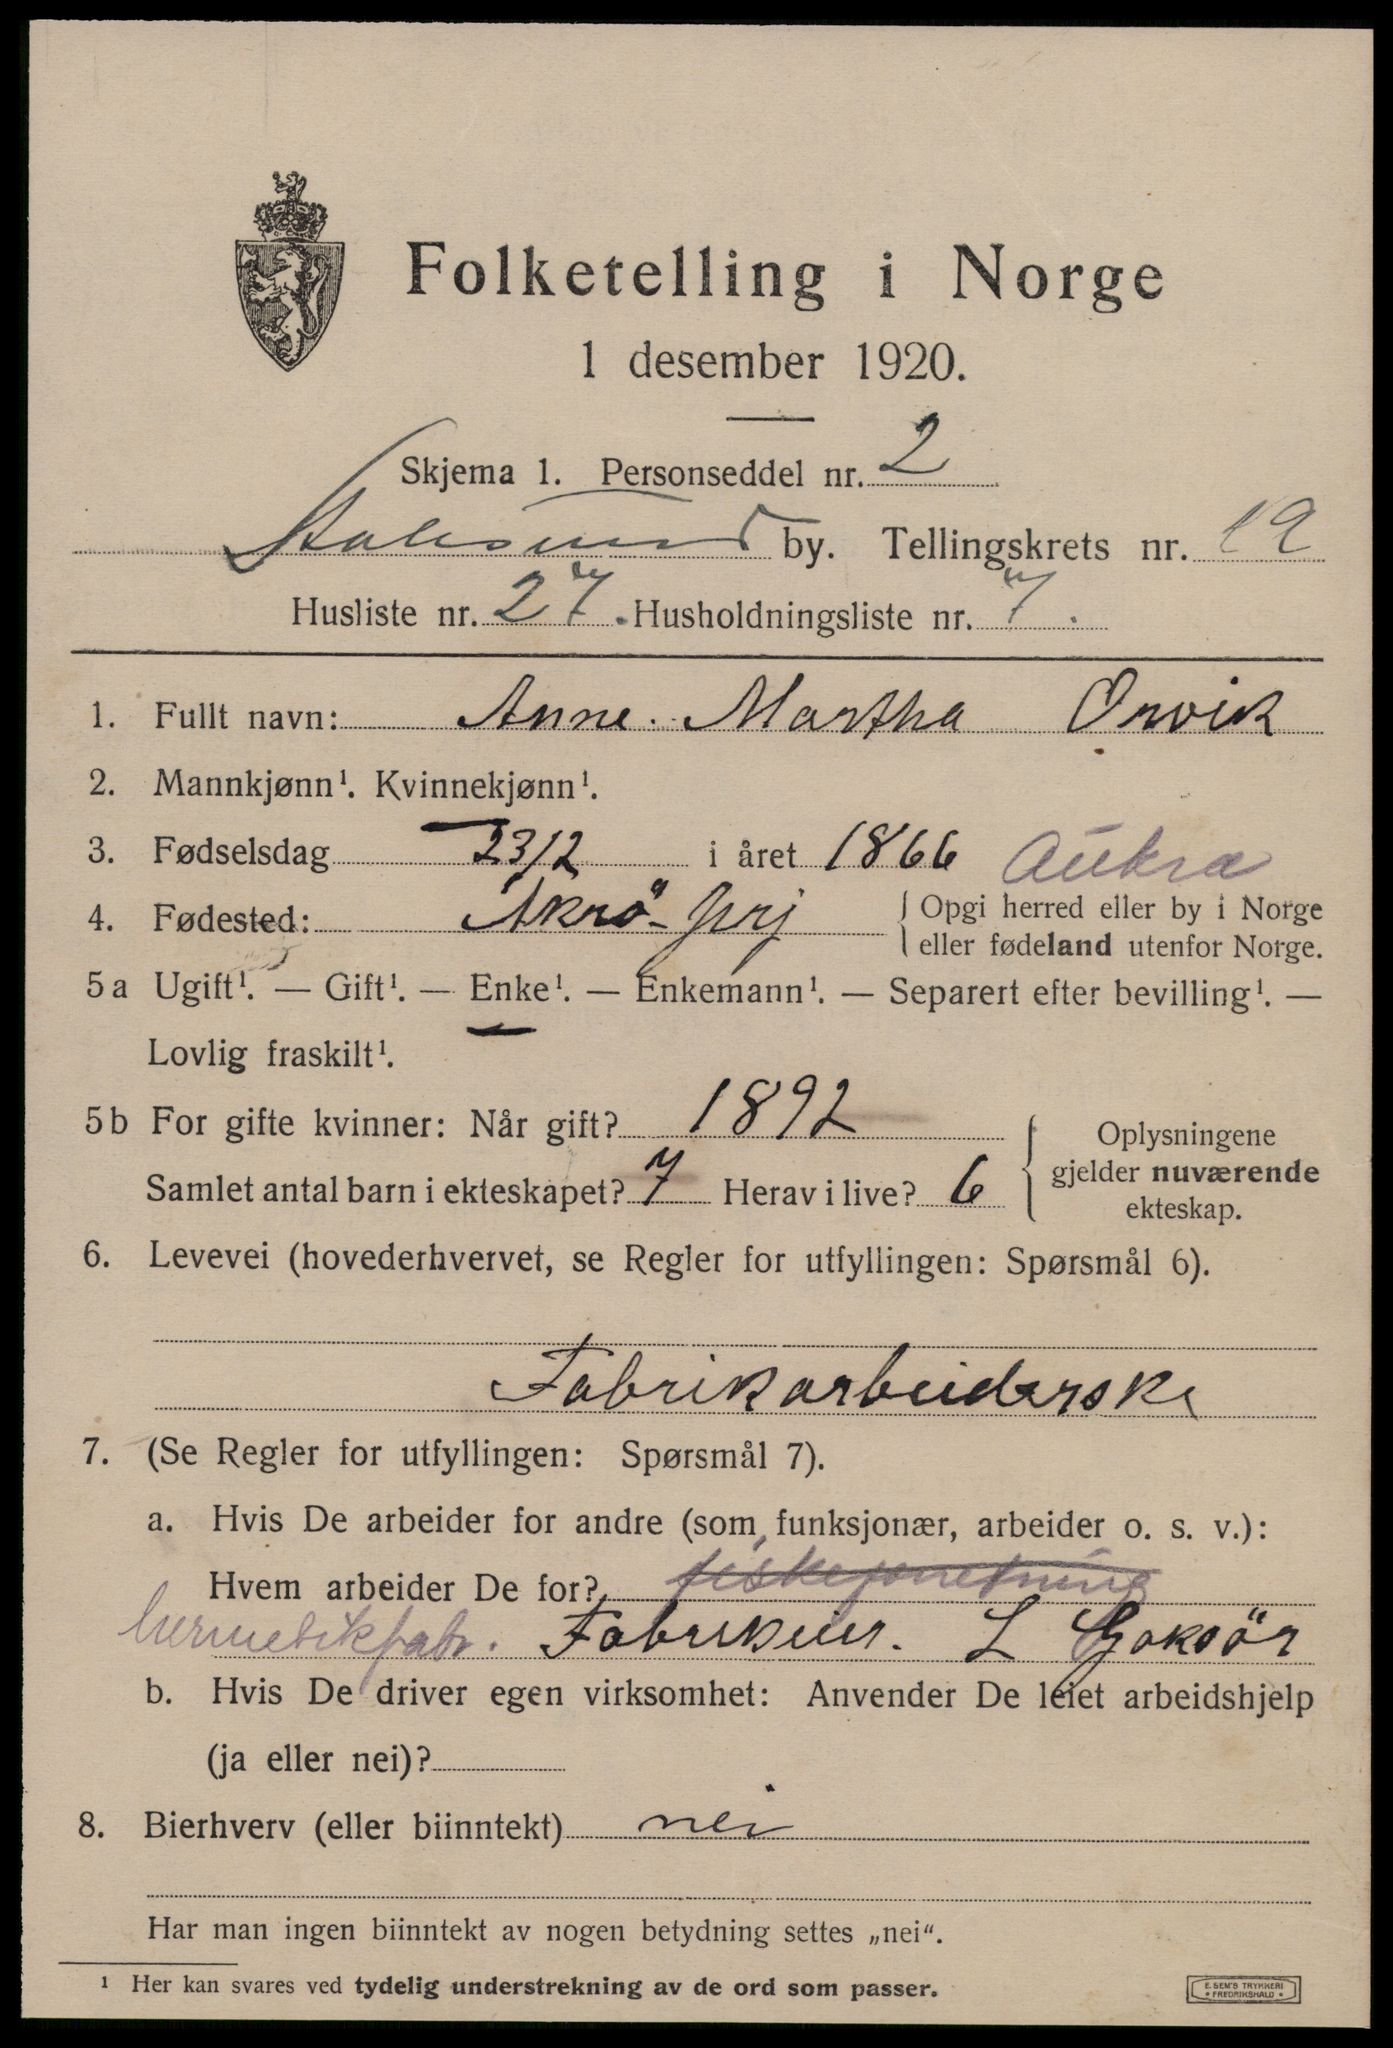 Folketelling i Norge
1 desember 1920.
Skjema 1. Personseddel nr. 2
by. Tellingskrets nr. 19
Husliste nr. 27. Husholdningsliste nr. 7.
1. Fullt navn: Anne. Martha Orvik
2. Mannkjønn¹. Kvinnekjønn¹.
3. Fødselsdag 23/2 i året 1866 Aukra
4. Fødested: Akrö- { Opgi herred eller by i Norge
eller fødeland utenfor Norge.
5a Ugift¹. — Gift¹. — Enke¹. — Enkemann¹. — Separert efter bevilling¹. —
Lovlig fraskilt¹.
5b For gifte kvinner: Når gift? 1892
Samlet antal barn i ekteskapet? 7 Herav i live? 6
Oplysningene
gjelder nuværende
ekteskap.
6. Levevei (hovederhvervet, se Regler for utfyllingen: Spørsmål 6).
Fabrikarbeiderske
7. (Se Regler for utfyllingen: Spørsmål 7).
a. Hvis De arbeider for andre (som funksjonær, arbeider o. s. v.):
Hvem arbeider De for?
hermetikfabr. Fabrikeier. L Goksör
b. Hvis De driver egen virksomhet: Anvender De leiet arbeidshjelp
(ja eller nei)?
8. Bierhverv (eller biinntekt) nei
Har man ingen biinntekt av nogen betydning settes „nei".
¹ Her kan svares ved tydelig understrekning av de ord som passer.
E. SEM'S TRYKKERI
• FREDRIKSHALD •